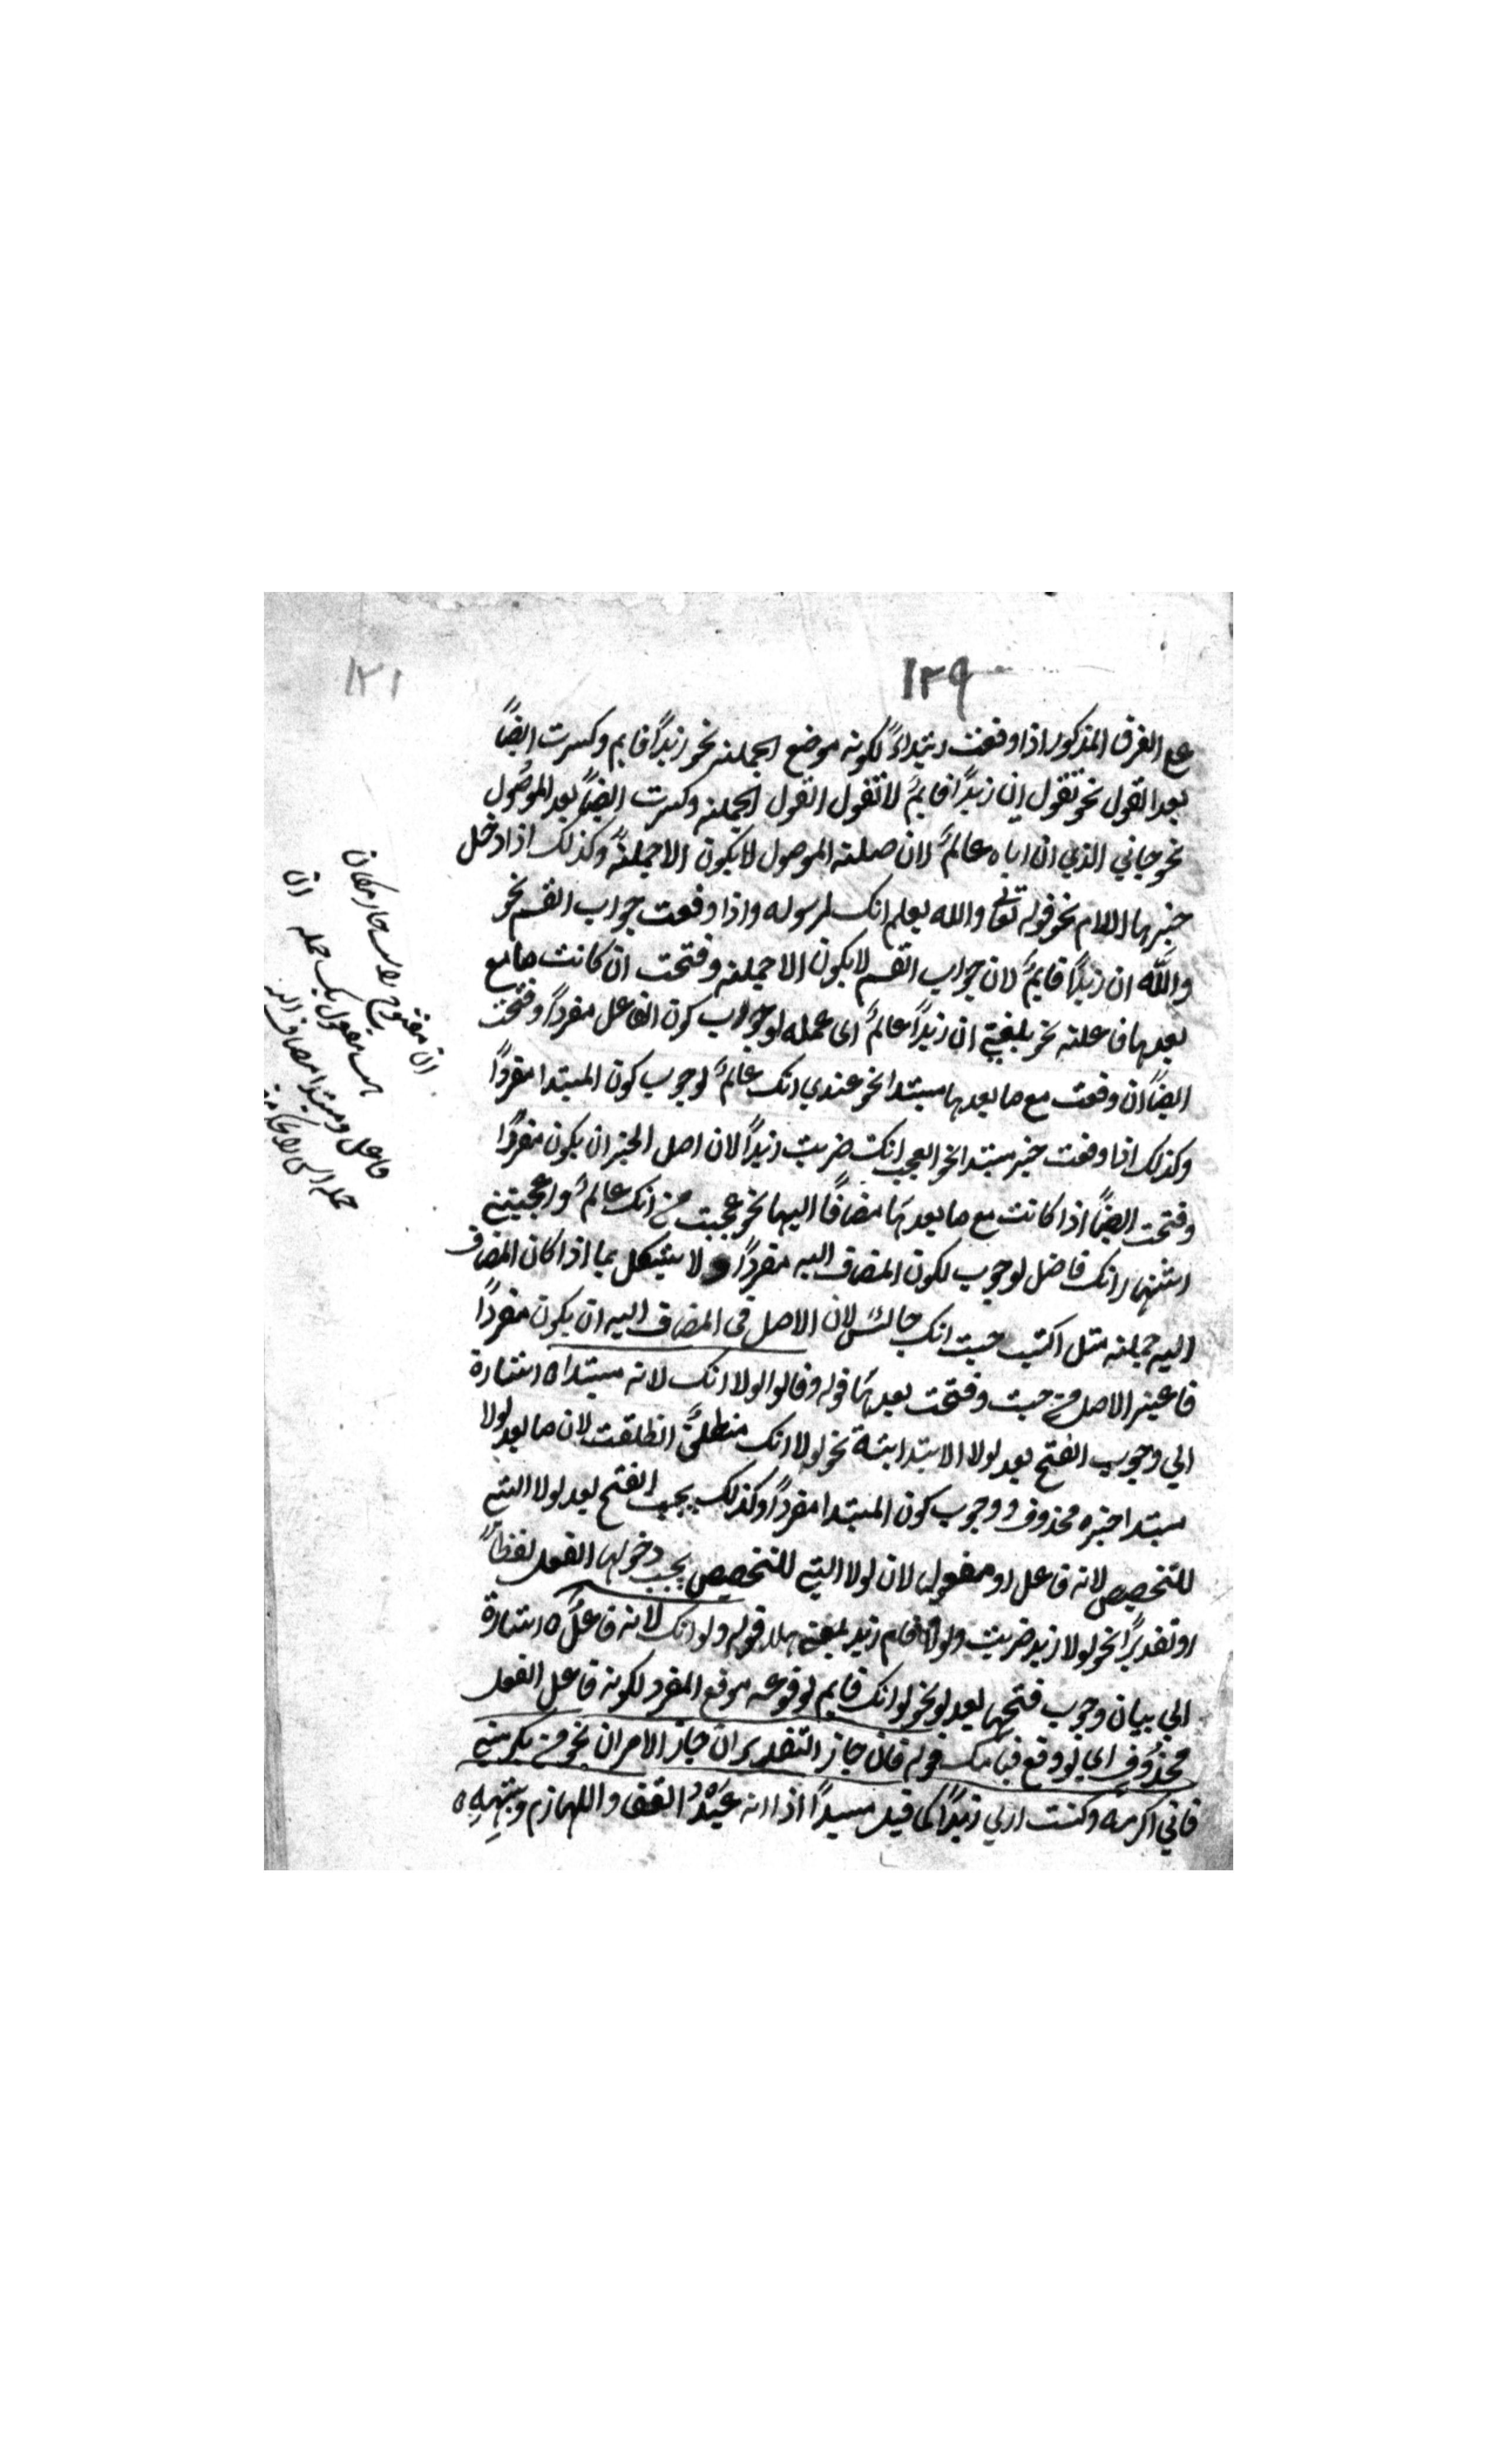 ١٢٩
١٢١
على الفرق المذكور اذا وقعت ابتداءً لكونه موضع الجملة نحو ان زيدًا قايم وكسرت ايضًا
بعد القول نحو تقول ان زيدًا قايمٌ لا تقول القول الجملة وكسرت ايضًا بعد الموصول
نحو جاني الذي ان اباه عالمٌ لان صلة الموصول لا يكون الا جملةً وكذلك اذا دخل
خبرها اللام نحو قوله تعالى والله يعلم انك لرسوله واذا وقعت جواب القسم نحو
والله ان زيدًا قايمٌ لان جواب القسم لا يكون الا جملة وفتحت ان كانت مع ما
بعدها فاعلة نحو بلغني ان زيدًا عالمٌ اى علمه لوجوب كون الفاعل مفردًا وفتحت
ايضًا ان وقعت مع ما بعدها مبتدا نحو عندي انك عالمٌ لوجوب كون المبتدا مفردًا
وكذلك اذا وقعت خبر مبتدا نحو العجب انك ضربت زيدًا لان اصل الخبر ان يكون مفردًا
وفتحت ايضًا اذا كانت مع ما بعدها مضافًا اليها نحو عجبت من انك عالمٌ واعجبني
اشتهار انك فاضل لوجوب لكون المضاف اليه مفردًا ولا يشكل بما اذا كان المضاف
اليه جملة مثل اكتب حيت انك جالسٌ لان الاصل فى المضاف اليه ان يكون مفردًا
فاعتبر الاصل من حيت وفتحت بعدها قوله وقالوا لولا انك لانه مبتدا ه اشارة
الي وجوب الفتح بعد لولا الابتدائية نحو لولا انك منطلقٌ انطلقت لان ما بعد لولا
مبتدا خبره محذوف ووجوب كون المبتدا مفردًا وكذلك يجب الفتح بعد لولا التي
للتخصيص لانه فاعل او مفعول لان لولا التي للتخصيص يجب دخولها الفعل لفظًا
او تقديرًا نحو لولا زيد ضربت ولولا قام زيد بمعنى هلا قوله ولو انك لانه فاعلٌ ه اشارة
الي بيان وجوب فتحها بعد لو نحو لو انك قايم لوقوعه موقع المفرد لكونه فاعل الفعل
محذوف اى لو وقع قيامك قوله فان جاز التقديران جاز الامران نحو من يكرمني
فاني اكرمه وكنت ارى زيدًا كما قيل سيدًا اذا انه عبدُ القفا واللهازم وشبهِهِ ه
ان مفتوح
فاعل ومبتدا مضاف اليه